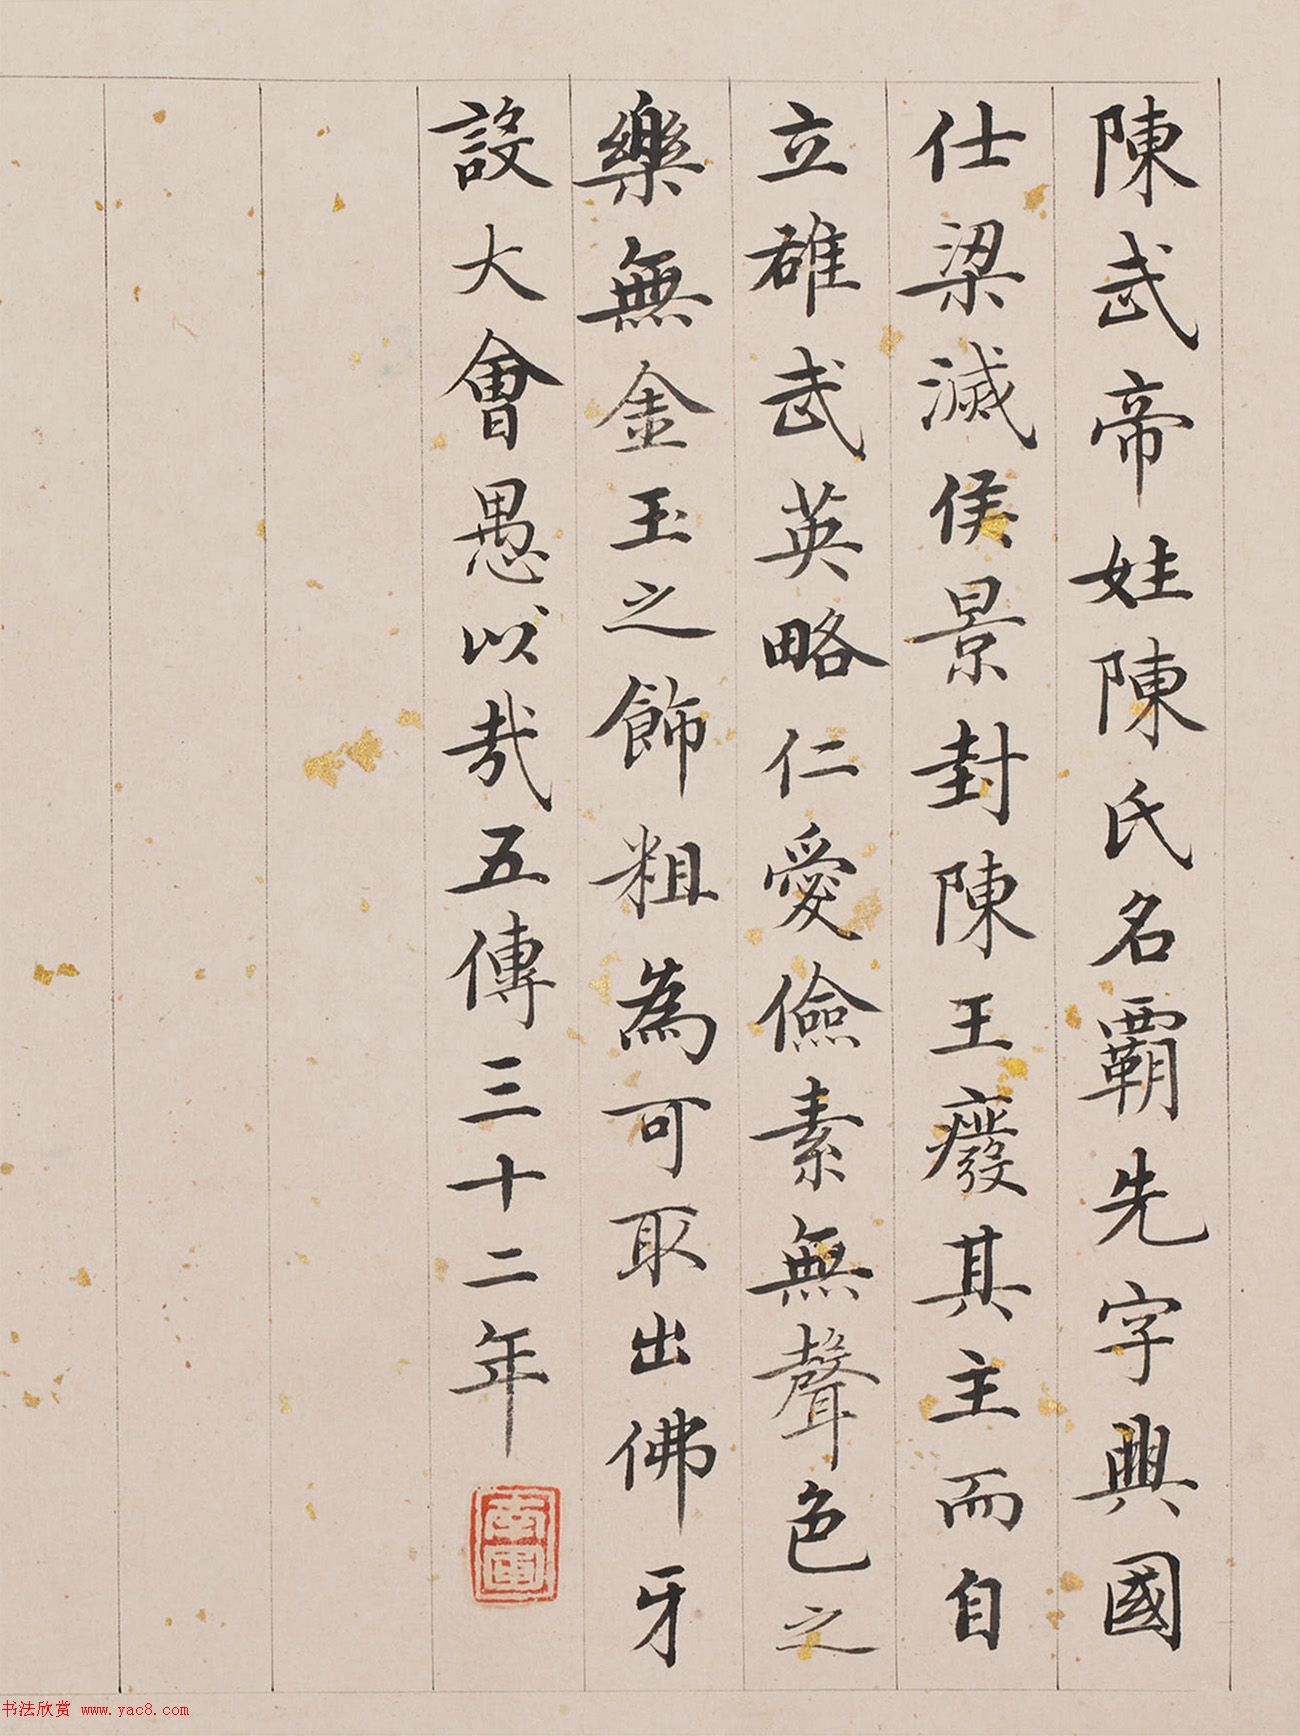 陳武帝姓陳氏名霸先字興國
仕梁滅侯景封陳王廢其主而自
立雄武英略仁愛儉素無聲色之
樂無金玉之飾粗為可取出佛牙
設大會愚以哉五傳三十二年
书法欣赏 www.yac8.com